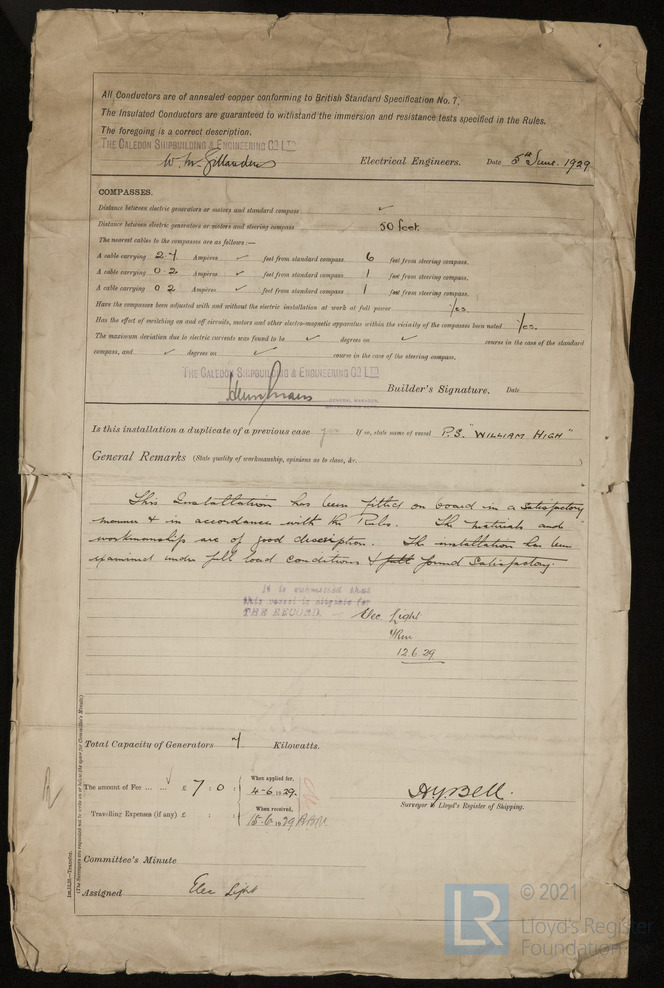 All Conductors are of annealed copper conforming to British Standard Specification No. 7.
The Insulated Conductors are guaranteed to withstand the immersion and resistance tests specified in the Rules.
The foregoing is a correct description.
THE CALEDON SHIPBUILDING & ENGINEERING CO LTD
Electrical Engineers. Date 5th June. 1929
COMPASSES.
Distance between electric generators or motors and standard compass
Distance between electric generators or motors and steering compass 50 feet
The nearest cables to the compasses are as follows :—
A cable carrying 2.4 Ampères feet from standard compass 6 feet from steering compass.
A cable carrying 0.2 Ampères feet from standard compass 1 feet from steering compass.
A cable carrying 0.2 Ampères feet from standard compass 1 feet from steering compass.
Have the compasses been adjusted with and without the electric installation at work at full power Yes.
Has the effect of switching on and off circuits, motors and other electro-magnetic apparatus within the vicinity of the compasses been noted Yes.
The maximum deviation due to electric currents was found to be degrees on course in the case of the standard
compass, and degrees on course in the case of the steering compass.
THE CALEDON SHIPBUILDING & ENGINEERING CO LTD
GENERAL MANAGER.
Builder's Signature. Date
Is this installation a duplicate of a previous case yes If so, state name of vessel P.S. "WILLIAM HIGH"
General Remarks (State quality of workmanship, opinions as to class, &c.)
This Installation has been fitted on board in a satisfactory
manner & in accordance with the Rules. The materials and
workmanship are of good description. The installation has been
examined under full load conditions & full found satisfactory.
It is submitted that
this vessel is eligible for
THE RECORD. Elec. Light
12.6.29
Total Capacity of Generators 4 Kilowatts.
The amount of Fee ... ... £ 7 : 0 : When applied for, 4-6-1929.
Travelling Expenses (if any) £ : : When received, 15.6.1929
A.Y. Bell.
Surveyor to Lloyd's Register of Shipping.
Committee's Minute
Assigned Elec Light
(The Surveyors are requested not to write on or below the space for Committee's Minute.)
LR © 2021
Lloyd's Register
Foundation